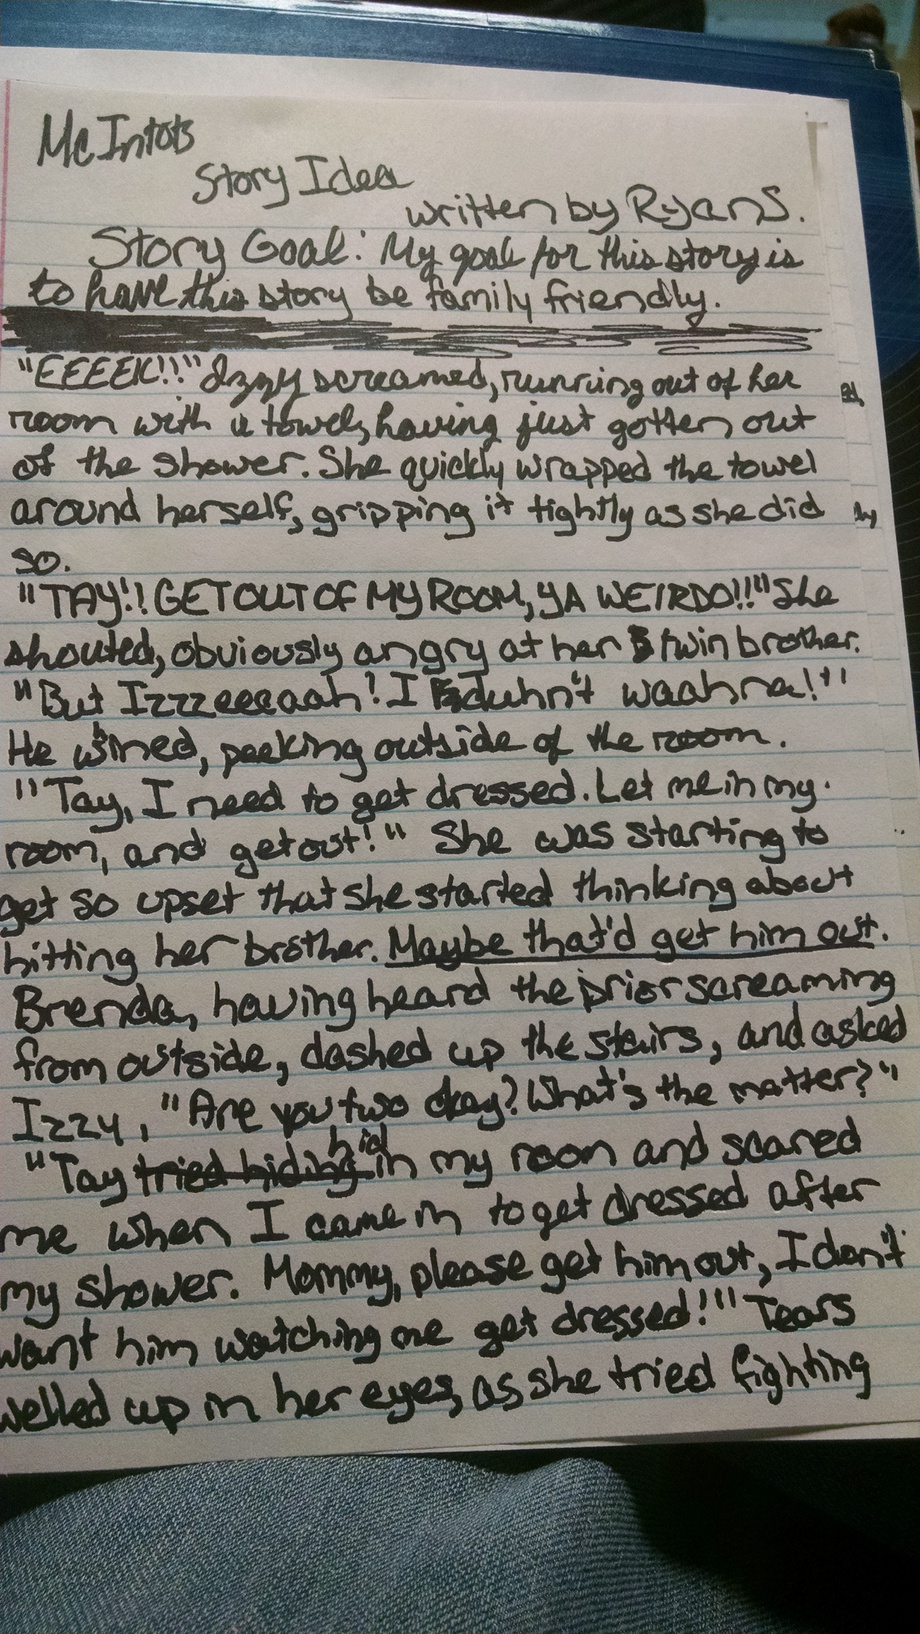 McIntots
Story Idea
written by Ryan S.
Story Goal: My goal for this story is
to have this story be family friendly.
"EEEEK!!" Izzy screamed, running out of her
room with a towel, having just gotten out
of the shower. She quickly wrapped the towel
around herself, gripping it tightly as she did
so.
"TAY!! GET OUT OF MY ROOM, YA WEIRDO!!" She
shouted, obviously angry at her twin brother.
"But Izzzeeeaah! I duhn't waahna!"
He whined, peeking outside of the room.
"Tay, I need to get dressed. Let me in my
room, and get out!" She was starting to
get so upset that she started thinking about
hitting her brother. Maybe that'd get him out.
Brenda, having heard the prior screaming
from outside, dashed up the stairs, and asked
Izzy, "Are you two okay? What's the matter?"
"Tay tried hiding hid in my room and scared
me when I came in to get dressed after
my shower. Mommy, please get him out, I don't
want him watching me get dressed!" Tears
welled up in her eyes, as she tried fighting